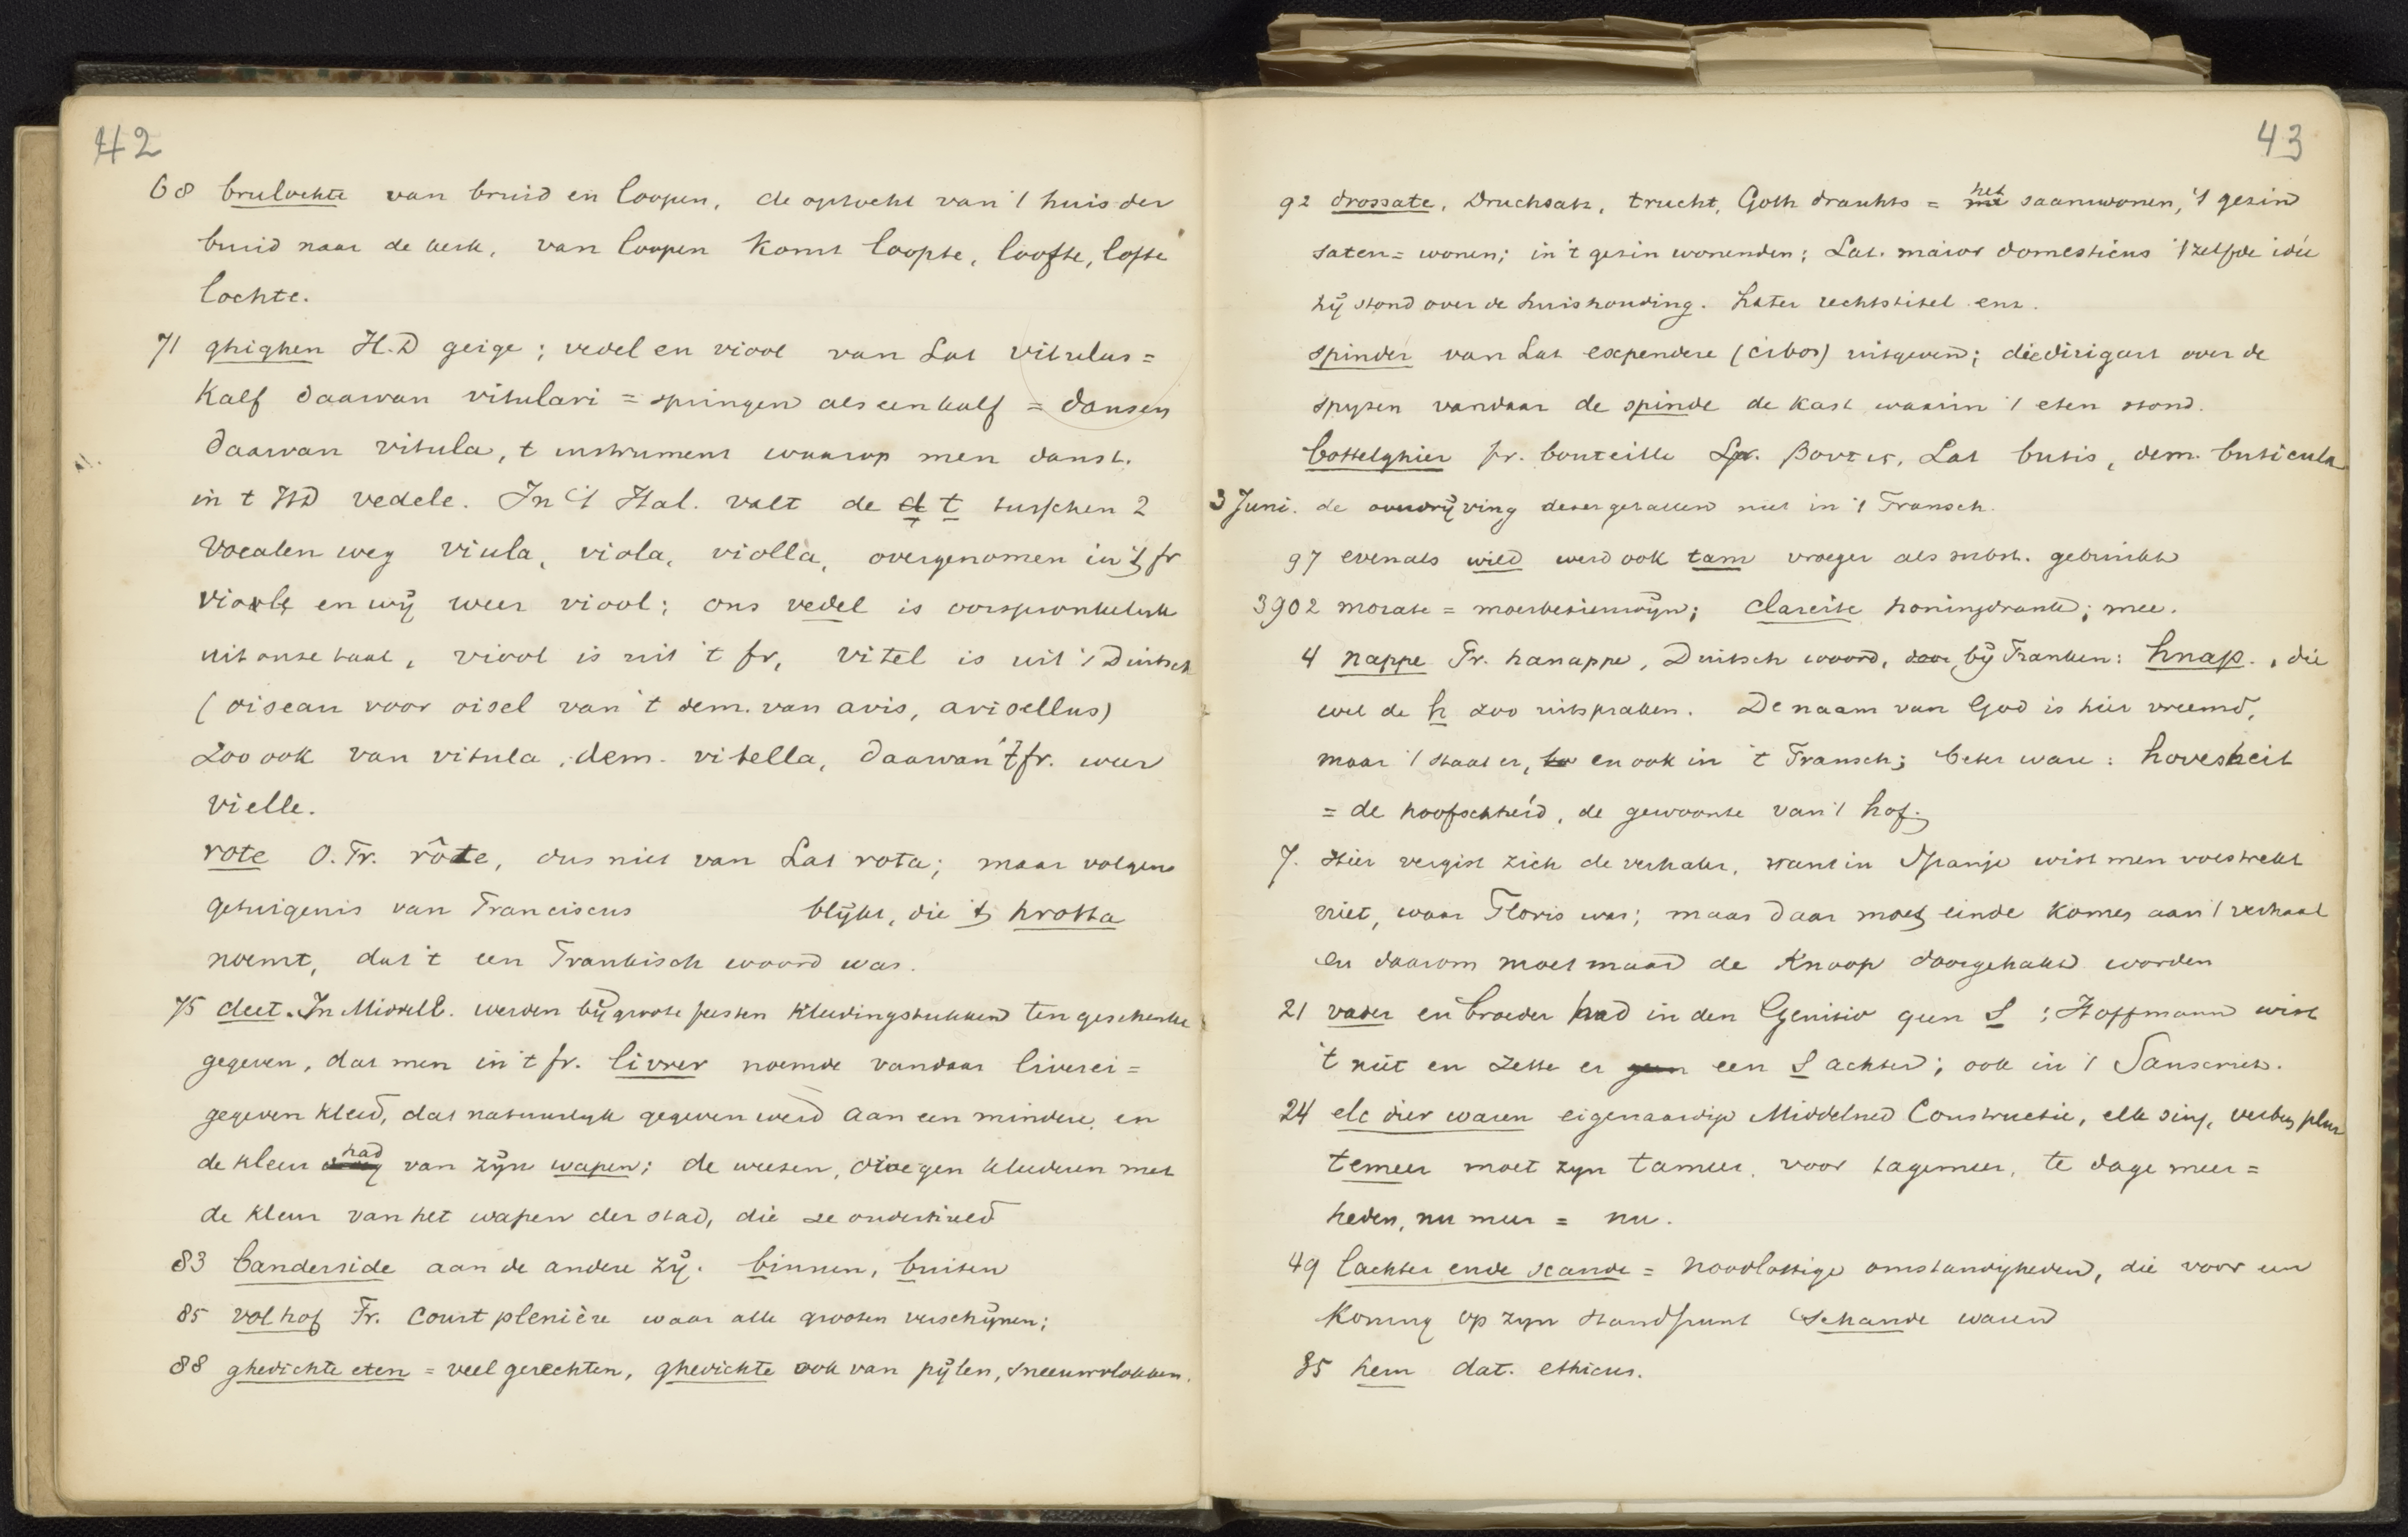 42
68 brulochte van bruid en loopen, de optocht van 't huis der
bruid naar de kerk, van loopen komt loopte, loofte, lofte
lochte.
71 ghighen H.D geige; vedel en viool van Lat vitulus =
Kalf daarvan vitulari = springen als een kalf = dansen
daarvan vitula, t instrument waarop men danst.
in t HD vedele. In 't Ital. valt de d t tusschen 2
Vocalen weg viula, viola, violla, overgenomen in 't fr
viole en wij weer viool; ons vedel is oorspronkelijk
uit onze taal, viool is uit 't fr, vitel is uit 't Duitsch
(oiseau voor oisel van 't dem. van avis, avisellus)
Zoo ook van vitula, dem. vitella, daarvan 't fr. weer
vielle.
rote O. Fr. rôte, dus niet van Lat rota; maar volgens
getuigenis van Franciscus blijkt, die 't hrotta
noemt, dat 't een Frankisch woord was.
75 cleet. In Middell. werden bij groote feesten kleedingstukken ten geschenke
gegeven, dat men in 't fr. livrer noemde vandaar liverei =
gegeven kleed, dat natuurlijk gegeven werd aan een mindere, en
de kleur had van zijn wapen; de weesen, droegen kleederen met
de kleur van het wapen der stad, die ze onderhield
83 banderside aan de andere zij. binnen, buiten
85 vol hof Fr. Court plenière waar alle grooten verschijnen;
88 ghedichte eten = veel gerechten, ghedichte ook van pijlen, sneeuwvlokken.
43
92 drossate, Druchsatz, trucht, Goth drauhts = het saamwonen, 't gezin
saten = wonen; in 't gezin wonenden; Lat. maior domesticus 't zelfde idée
hij stond over de huishouding. Later rechtstitel enz.
spinder van Lat expendere (cibos) uitgeven; die dirigeert over de
spijzen vandaar de spinde de kast waarin 't eten stond.
bottelghier fr. bouteille Gr. βουτις, Lat butis, dem. buticula
3 Juni. de overdrijving dezer getallen niet in 't Fransch.
97 evenals wild werd ook tam vroeger als subst. gebruikt
3902 morate = moerbeziënwijn; clareite honingdrank; mee.
4 nappe Fr. hanappe, Duitsch woord, door bij Franken: hnap., die
wel de h zoo uitspraken. De naam van God is hier vreemd,
maar 't staat er, en ook in 't Fransch; beter ware: hovesheit
= de hoofschheid, de gewoonte van 't hof.
7. Hier vergist zich de verhaler, want in Spanje wist men volstrekt
niet, waar Floris was; maar daar moet einde komen aan 't verhaal
en daarom moet maar de Knoop doorgehakt worden
21 vader en broeder had in den Genitiv geen S; Hoffmann wist
't niet en zette er geen een S achter; ook in 't Sanscriet.
24 elc dier waren eigenaardige Middelned Constructie, elk sing, verbum plur
temeer moet zijn tameer, voor tagemeer, te dage meer =
heden, nu meer = nu.
49 lachter ende scande = noodlottige omstandigheden, die voor een
Koning op zijn standpunt schande waren
85 hem dat. ethicus.